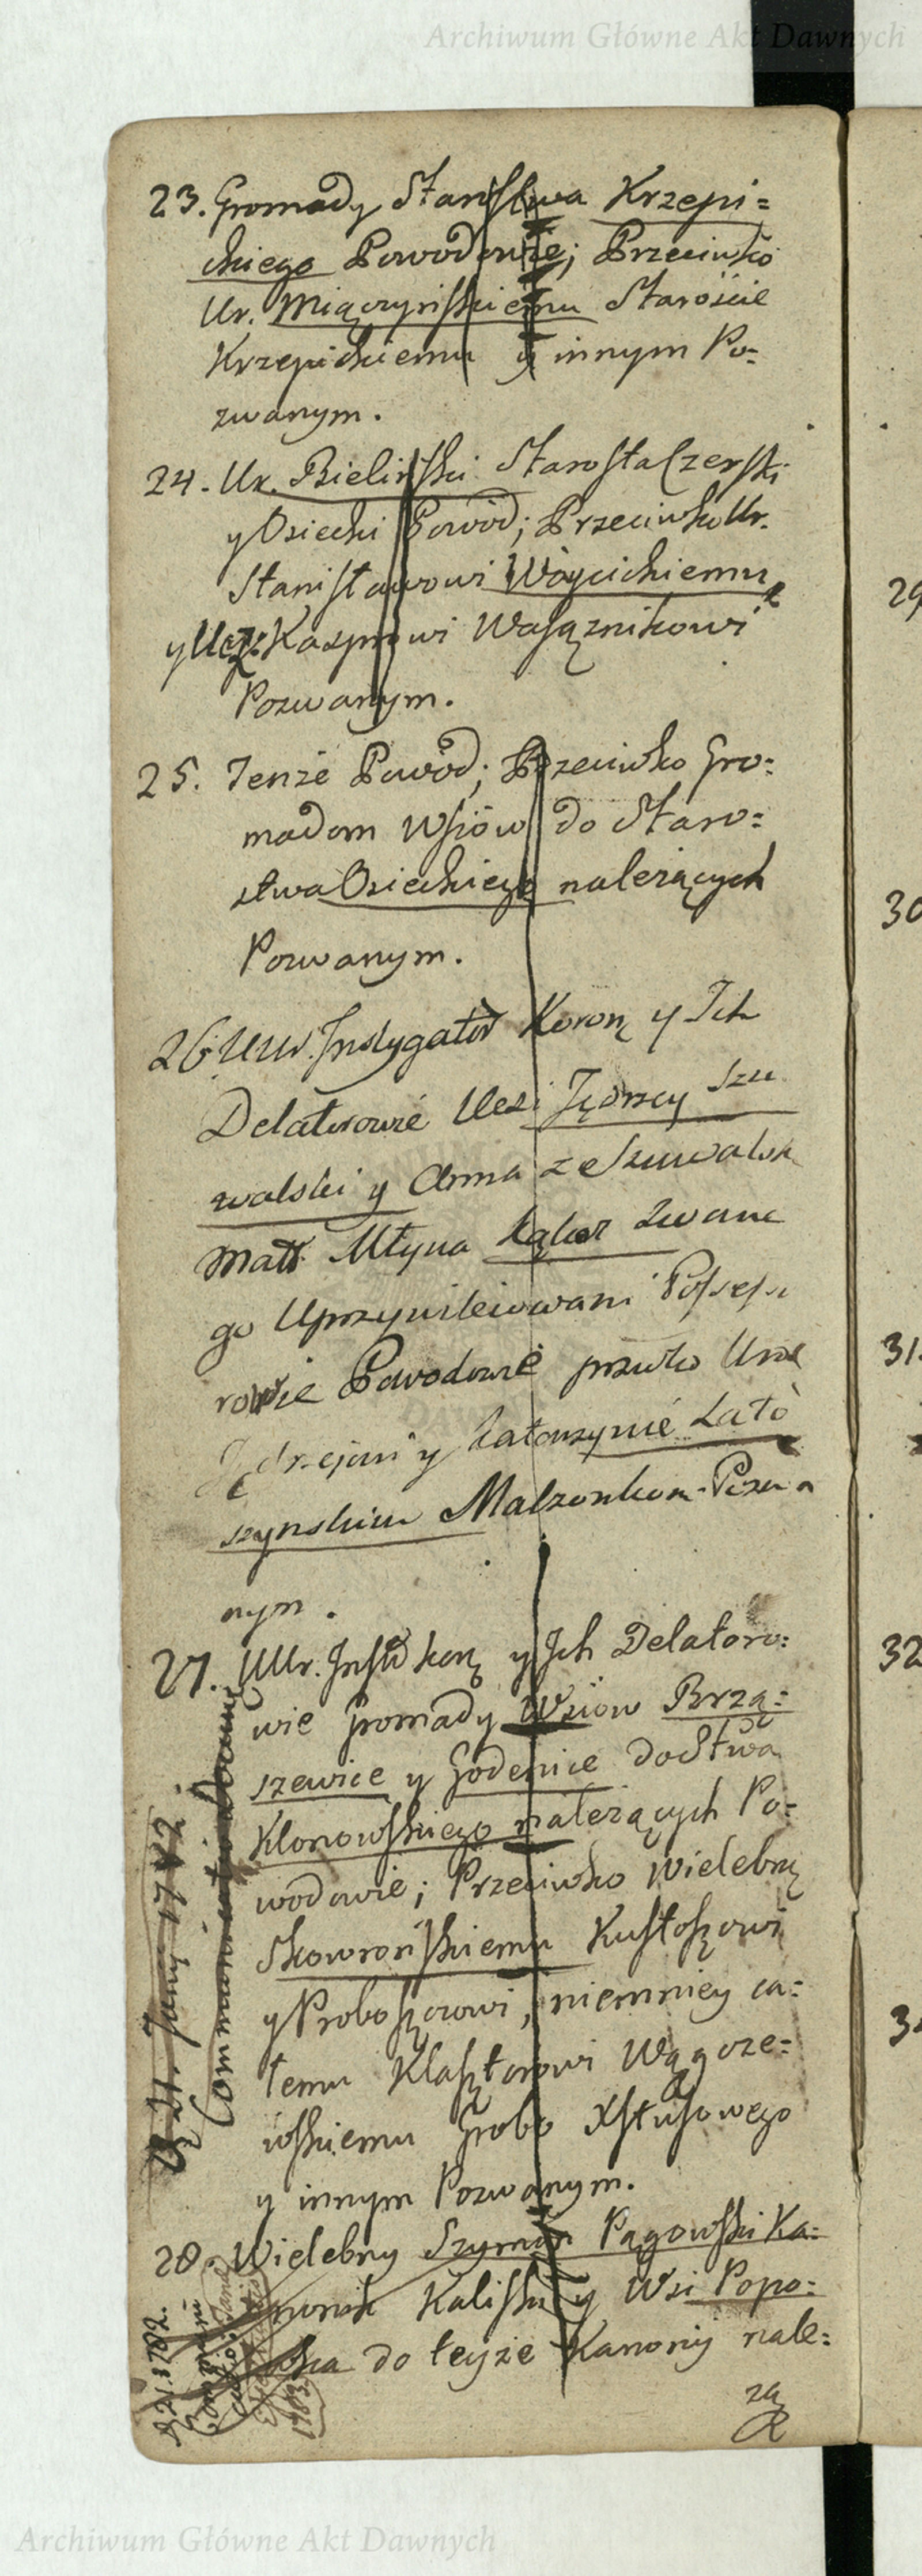 Archiwum Główne Akt Dawnych
23. Gromady Starostwa Krzepi=
ckiego Powodowie; Przeciwko
Ur. Miączyńskiemu Staroście
Krzepickiemu y innym Po=
zwanym.
24. Ur. Bieliński Starosta Czerski
y Osiecki Powód; Przeciwko Ur.
Stanisławowi Wóycickiemu
y Ucz: Kasprowi Wasąznikowi
Pozwanym.
25. Tenże Powód; Przeciwko Gro=
madom Wsiów do Staro=
stwa Osieckiego należących
Pozwanym.
26 UUr. Instygator Koron y Ich
Delatorowie Ucz: Jędrzey Szu
walski y Anna z Szuwalsk
Małż. Młyna Kądor zwane
go Uprzywileiowani Possesso
rowie Powodowie przwko Urod
Jędrzejowi y Katarzynie Łato
szynskim Małzonkom Pozwa
nym.
27. UUr. Inst. koro y Ich Delatoro=
wie Gromady Wsiow Brzą=
szewice y Godenice do Stwa
Klonowskiego należących Po=
wodowie; Przeciwko Wielebn
Skowrońskiemu Kustoszowi
y Proboszczowi, niemniey ca=
łemu Klasztorowi
Grobo Xstusowego
y innym Pozwanym.
28. Wielebny Szymon Pągowski Ka=
nonik Kaliski y Wsi Popo=
wka do teyże Kanonij nale=
zą
31. Janry 1782.
Communicatio
Archiwum Główne Akt Dawnych
29
30
31.
32